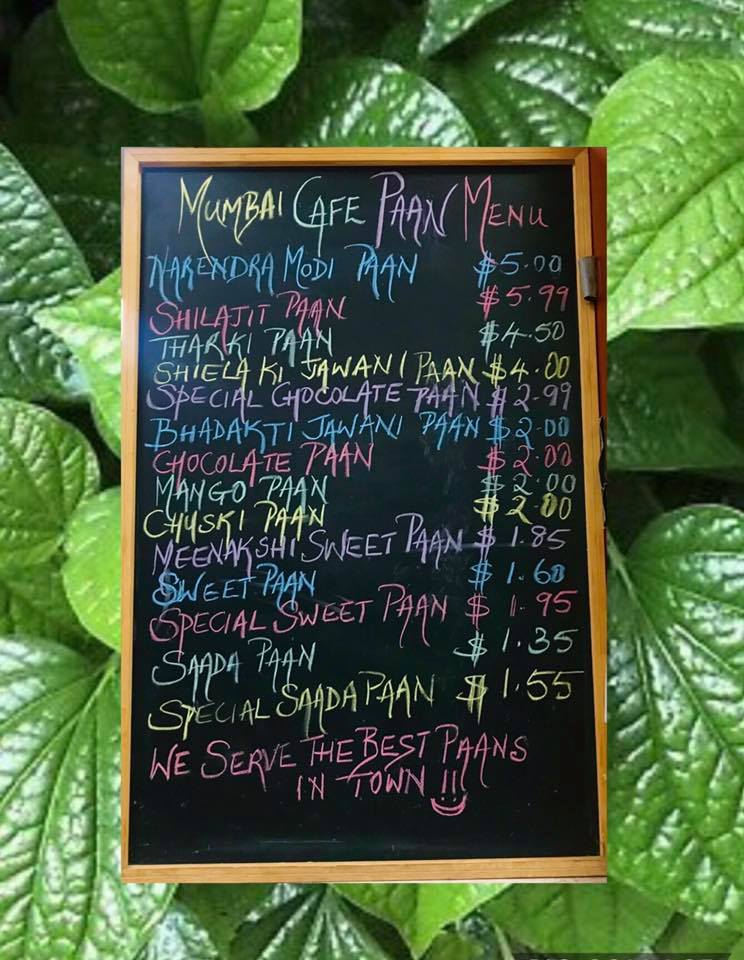 MUMBAI CAFE PAAN MENU
NARENDRA MODI PAAN $5.00
SHILAJIT PAAN $5.99
THARKI PAAN $4.50
SHIELA KI JAWANI PAAN $4.00
SPECIAL CHOCOLATE PAAN $2.99
BHADAKTI JAWANI PAAN $2.00
CHOCOLATE PAAN $2.00
MANGO PAAN $2.00
CHUSKI PAAN $2.00
MEENAKSHI SWEET PAAN $1.85
SWEET PAAN $1.60
SPECIAL SWEET PAAN $1.95
SAADA PAAN $1.35
SPECIAL SAADA PAAN $1.55
WE SERVE THE BEST PAANS
IN TOWN !!!